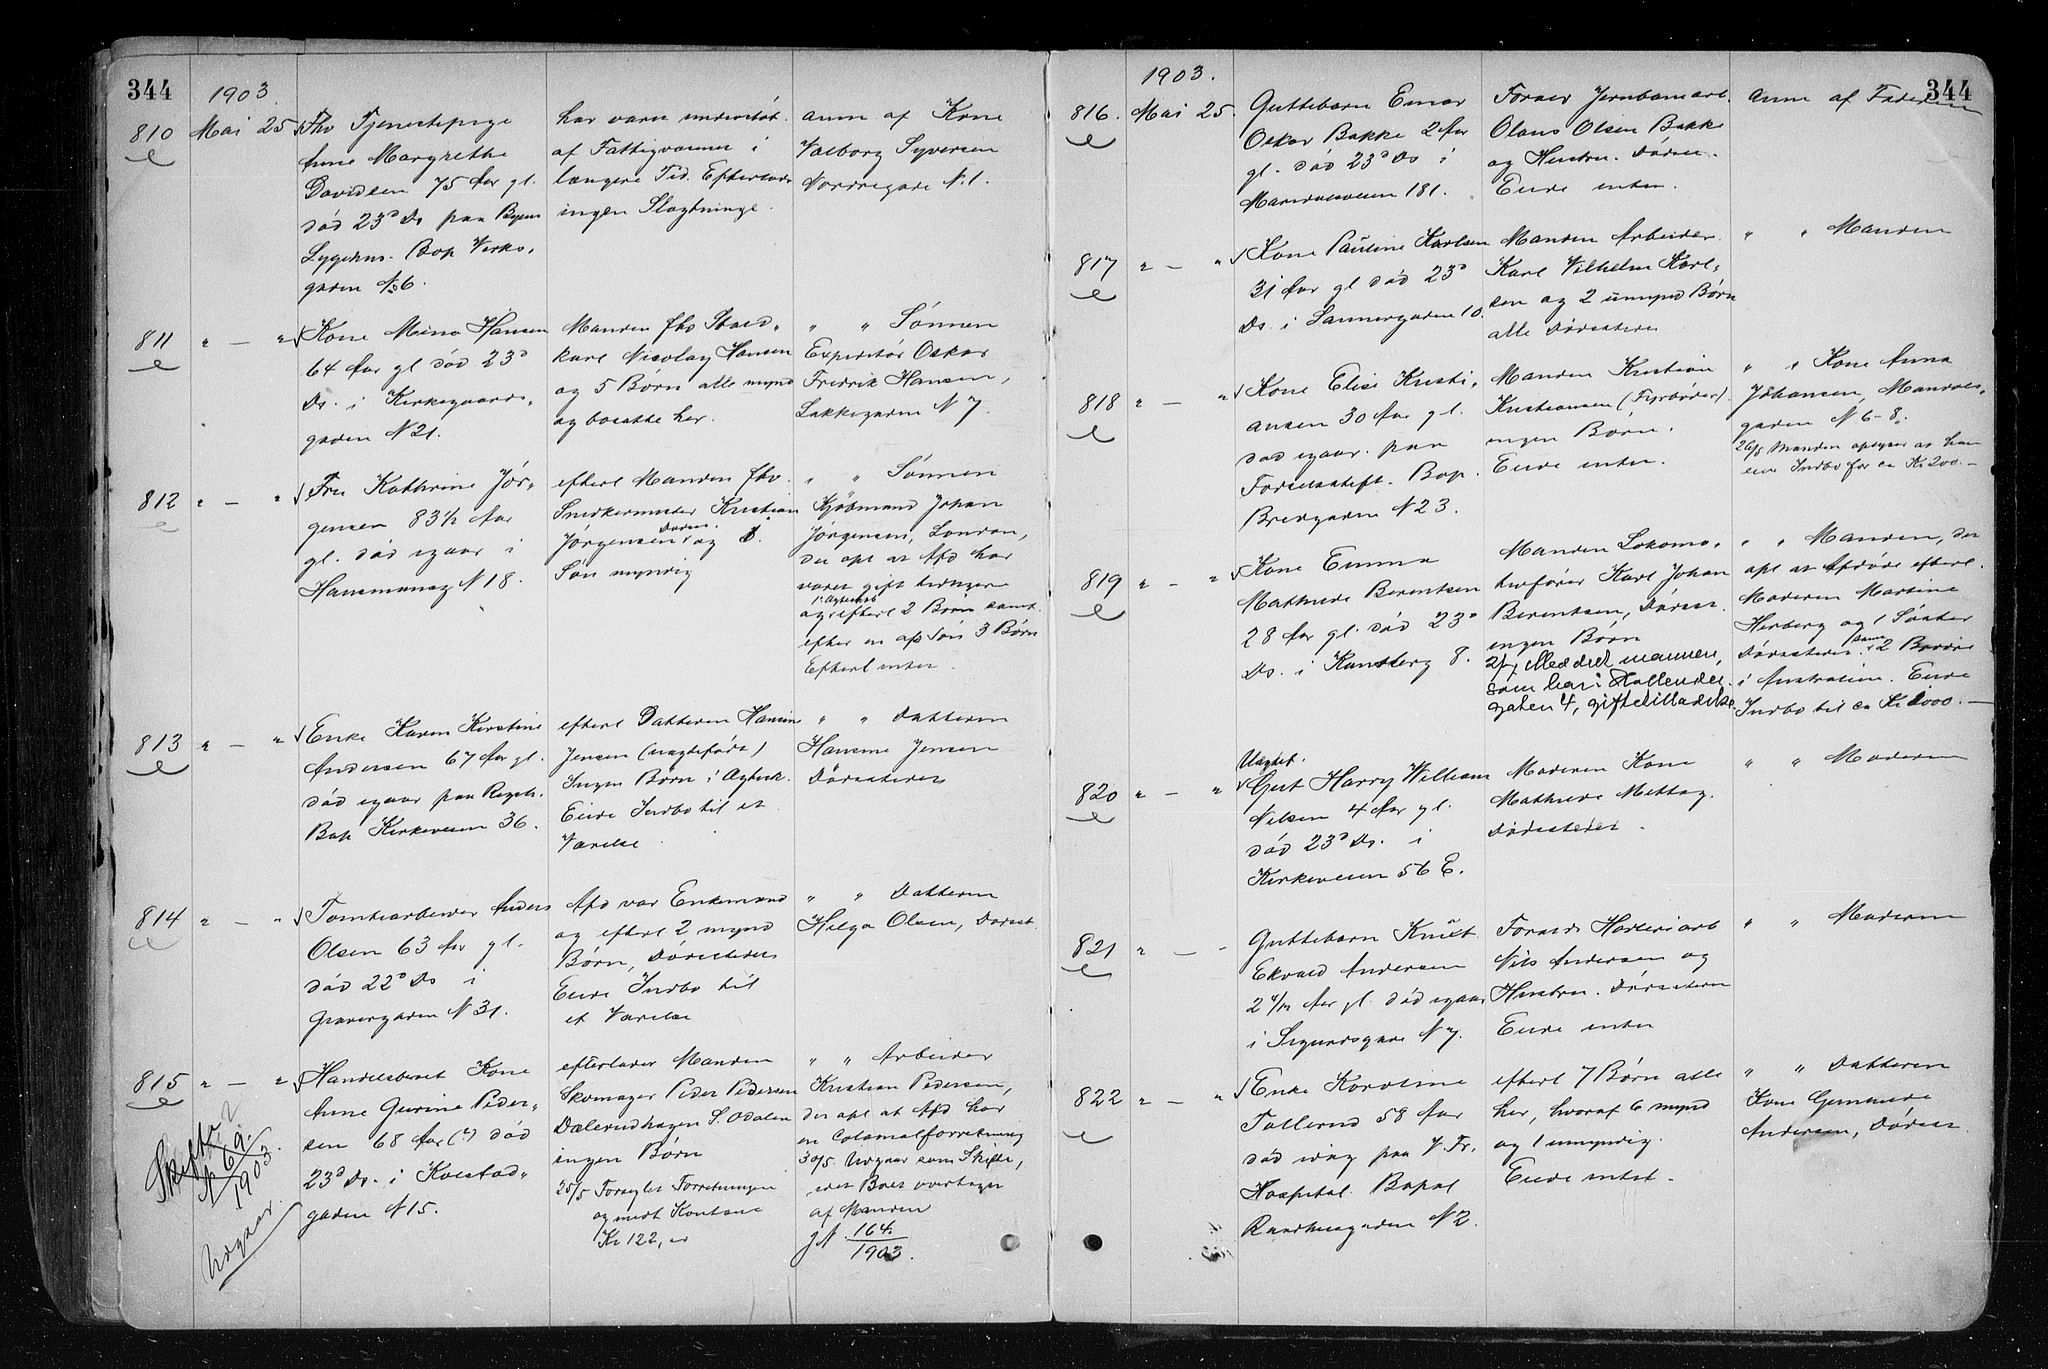 344
1903.
810 Mai 25 Fhv Tjenestepige
Anne Margrethe
Davidsen 75 Aar gl.
død 23d Ds paa Byens
Sygehus. Bop Verks-
gaden No 6.
har været understøt.
af Fattigvæsenet i
længere Tid. Efterlader
ingen Slægtninge.
anm af Kone
Valborg Syversen
Nordregade N. 1.
811 " — " Kone Mina Hansen
64 Aar gl død 23d
Ds. i Kirkegaards-
gaden N 21.
Manden fhv Stald-
karl Nicolay Hansen
og 5 Børn alle mynd
og bosatte her.
" " Sønnen
Expeditør Oskar
Fredrik Hansen,
Lakkegaden N 7.
812 " — " Fru Kathrine Jør-
gensen 83 1/2 Aar
gl. død igaar i
Hansmanag N 18.
efterl Manden fhv.
Snedkermester Kristian
Jørgensen Dødsst. og 1
Søn myndig
" " Sønnen
Kjøbmand Johan
Jørgensen, London,
der opl at Afd har
været gift tidligere
og i 1. Ægteskab efterl 2 Børn samt
efter en afd Søn 3 Børn
Efterl intet.
813 " — " Enke Karen Kirstine
Andersen 67 Aar gl.
død igaar paa Rigsh.
Bop Kirkeveien 36.
efterl Datteren Hansine
Jensen (uægtefødt)
Ingen Børn i Ægtesk.
Eiede Indbo til et
Værelse
" " Datteren
Hansine Jensen
Dødsstedet
814 " — " Tomtearbeider Anders
Olsen 63 Aar gl.
død 22d Ds i
Gravergaden N 31.
Afd var Enkemand
og efterl 2 mynd
Børn, Dødsstedet
Eiede Indbo til
et Værelse
" " Datteren
Helga Olsen, Dødsst.
815 " — " Handelsberet Kone
Anne Gurine Peder-
sen 68 Aar (?) død
23d Ds. i Kolstad-
gaden N 15.
efterlader Manden
Skomager Peder Pedersen
Dælerudhagen S. Odalen
ingen Børn
25/5 Forseglet Forretningen
og medt Kontant
Kr 122,
" " Arbeider
Kristian Pedersen,
der opl at Afd har
en Colonialforretning
30/5. Udgaar som Skifte,
idet Boet overtages
af Manden
jN 164/1903.
Skifte
N 69/1903.
Udgaar
344
1903.
816. Mai 25. Guttebarn Einar
Oskar Bakke 2 Aar
gl. død 23d Ds i
Maridalsveien 181.
Foræld Jernbanearb.
Olaus Olsen Bakke
og Hustru. Dødsst.
Eiede intet.
anm af Faderen
817 " — " Kone Pauline Karlsen
31 Aar gl død 23d
Ds. i Sannergaden 10.
Manden Arbeider
Karl Vilhelm Karl-
sen og 2 umynd Børn
alle Dødsstedet
" " Manden
818 " — " Kone Elise Kristi-
ansen 30 Aar gl.
død igaar paa
Fødselsstift. Bop.
Bredgaden N 23.
Manden Kristian
Kristiansen (Fyrbøder).
ingen Børn.
Eiede intet.
" " Kone Anna
Johansen, Mandals-
gaden N 6-8.
26/5 Manden oplyser at han
eier Indbo for ca Kr 200.—
819 " — " Kone Emma
Mathilde Berentsen
28 Aar gl. død 23d
Ds. i Kanslerg 8.
Manden Lokomo-
tivfører Karl Johan
Berentsen, Dødsst.
ingen Børn
Meddelt manden,
som bor i Hollender-
gaten 4, giftetilladelse
" " Manden, der
opl at Afdøde efterl.
Moderen Martine
Herberg og 1 Søster
Dødsstedet samt 2 Brødre
i Australien. Eiede
Indbo til ca Kr 1000.—
820 " — " Uægtef.
Gut Harry William
Nilsen 4 Aar gl.
død 23d Ds. i
Kirkeveien 56 E.
Moderen Kone
Mathilde Mettag.
Dødsstedet.
" " Moderen
821 " — " Guttebarn Knut
Ekvald Andersen
2 Aar gl. død igaar
i Sigurdsgade N 7.
Foræld.
Nils Andersen og
Hustru. Dødsstedet
Eiede intet
" " Moderen
822 " — " Enke Karoline
Tollerud 58 Aar
død idag paa V. Fr.
Hospital. Bopæl
Raadhusgaden N 2.
efterl 7 Børn alle
her, hvoraf 6 mynd
og 1 umyndig.
Eiede intet.
" " Datteren
Kone Gunhilde
Andersen, Dødsst.